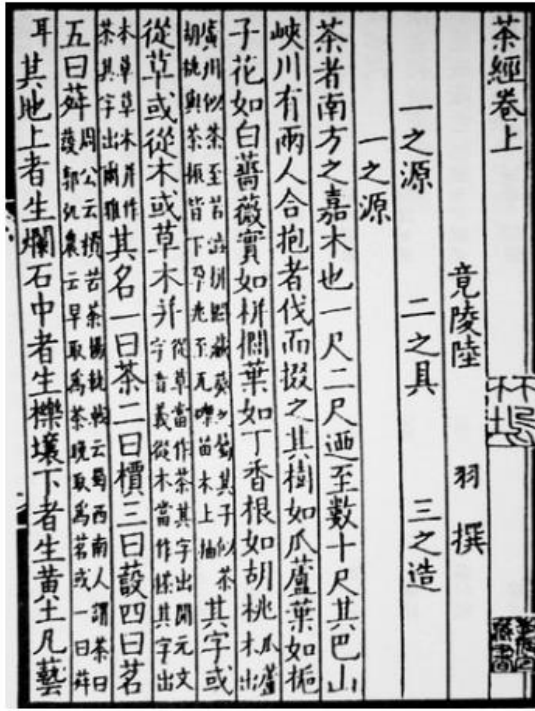 茶經卷上
竟陵陸 羽 撰
一之源 二之具 三之造
一之源
茶者南方之嘉木也一尺二尺廼至數十尺其巴山
峽川有兩人合抱者伐而掇之其樹如瓜蘆葉如梔
子花如白薔薇實如栟櫚葉如丁香根如胡桃瓜蘆木出
廣州似茶至苦澁栟櫚蒲葵之屬其子似茶胡桃與茶根皆下孕兆至瓦礫苗木上抽其字或
從草或從木或草木并從草當作茶其字出開元文字音義從木當作㯆其字出
本草草木并作荼其字出爾雅其名一曰茶二曰檟三曰蔎四曰茗
五曰荈周公云檟苦荼揚執戟云蜀西南人謂茶曰蔎郭弘農云早取爲茶晚取爲茗或一曰荈
耳其地上者生爛石中者生櫟壤下者生黄土凡藝